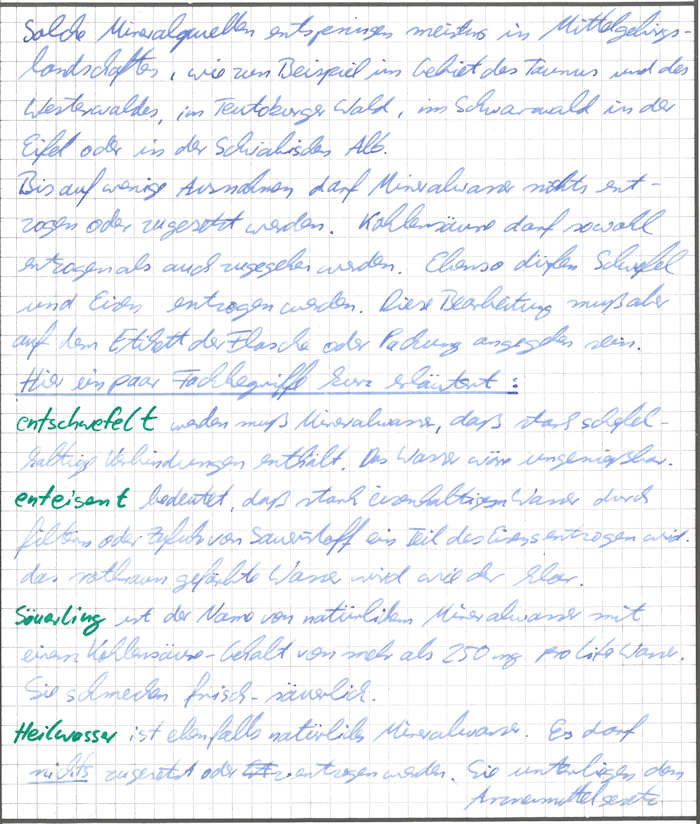 Solche Mineralquellen entspringen meistens in Mittelgebirgs-
landschaften, wie zum Beispiel im Gebiet des Taunus und des
Westerwaldes, im Teutoburger Wald, im Schwarzwald in der
Eifel oder in der Schwäbischen Alb.
Bis auf wenige Ausnahmen darf Mineralwasser nichts ent-
zogen oder zugesetzt werden. Kohlensäure darf sowohl
entzogen als auch zugegeben werden. Ebenso dürfen Schwefel
und Eisen entzogen werden. Diese Bearbeitung muß aber
auf dem Etikett der Flasche oder Packung angegeben sein.
Hier ein paar Fachbegriffe kurz erläutert:
entschwefelt werden muß Mineralwasser, daß stark schefel-
haltige Verbindungen enthält. Das Wasser wäre ungenießbar.
enteisent bedeutet, daß stark eisenhaltigen Wasser durch
filtern oder Zufuhr von Sauerstoff ein Teil des Eisens entzogen wird.
das rotbraun gefärbte Wasser wird wieder klar.
Säuerling ist der Name von natürlichem Mineralwasser mit
einem Kohlensäure-Gehalt von mehr als 250 mg pro Liter Wasser.
Sie schmecken frisch-säuerlich.
Heilwasser ist ebenfalls natürliches Mineralwasser. Es darf
nichts zugesetzt oder entzogen werden. Sie unterliegen dem
Arzneimittelgesetz